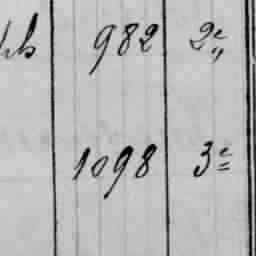 982 2e
1098 3e